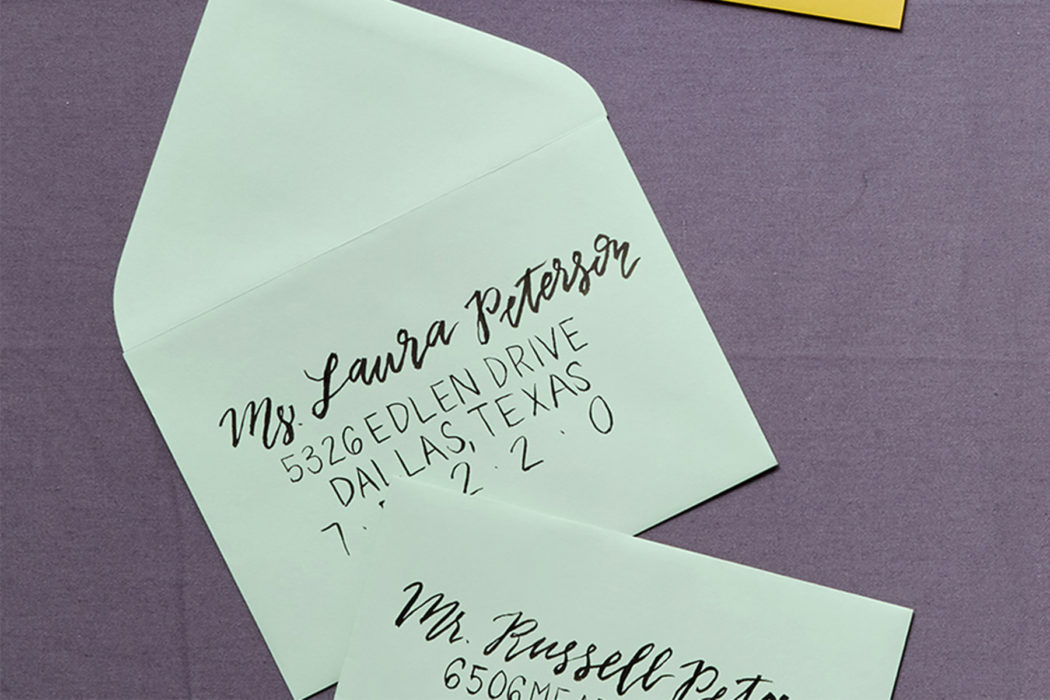 Ms. Laura Peterson
5326 EDLEN DRIVE
DALLAS, TEXAS
7 · · 2 · 2 · 0
Mr. Russell
6506